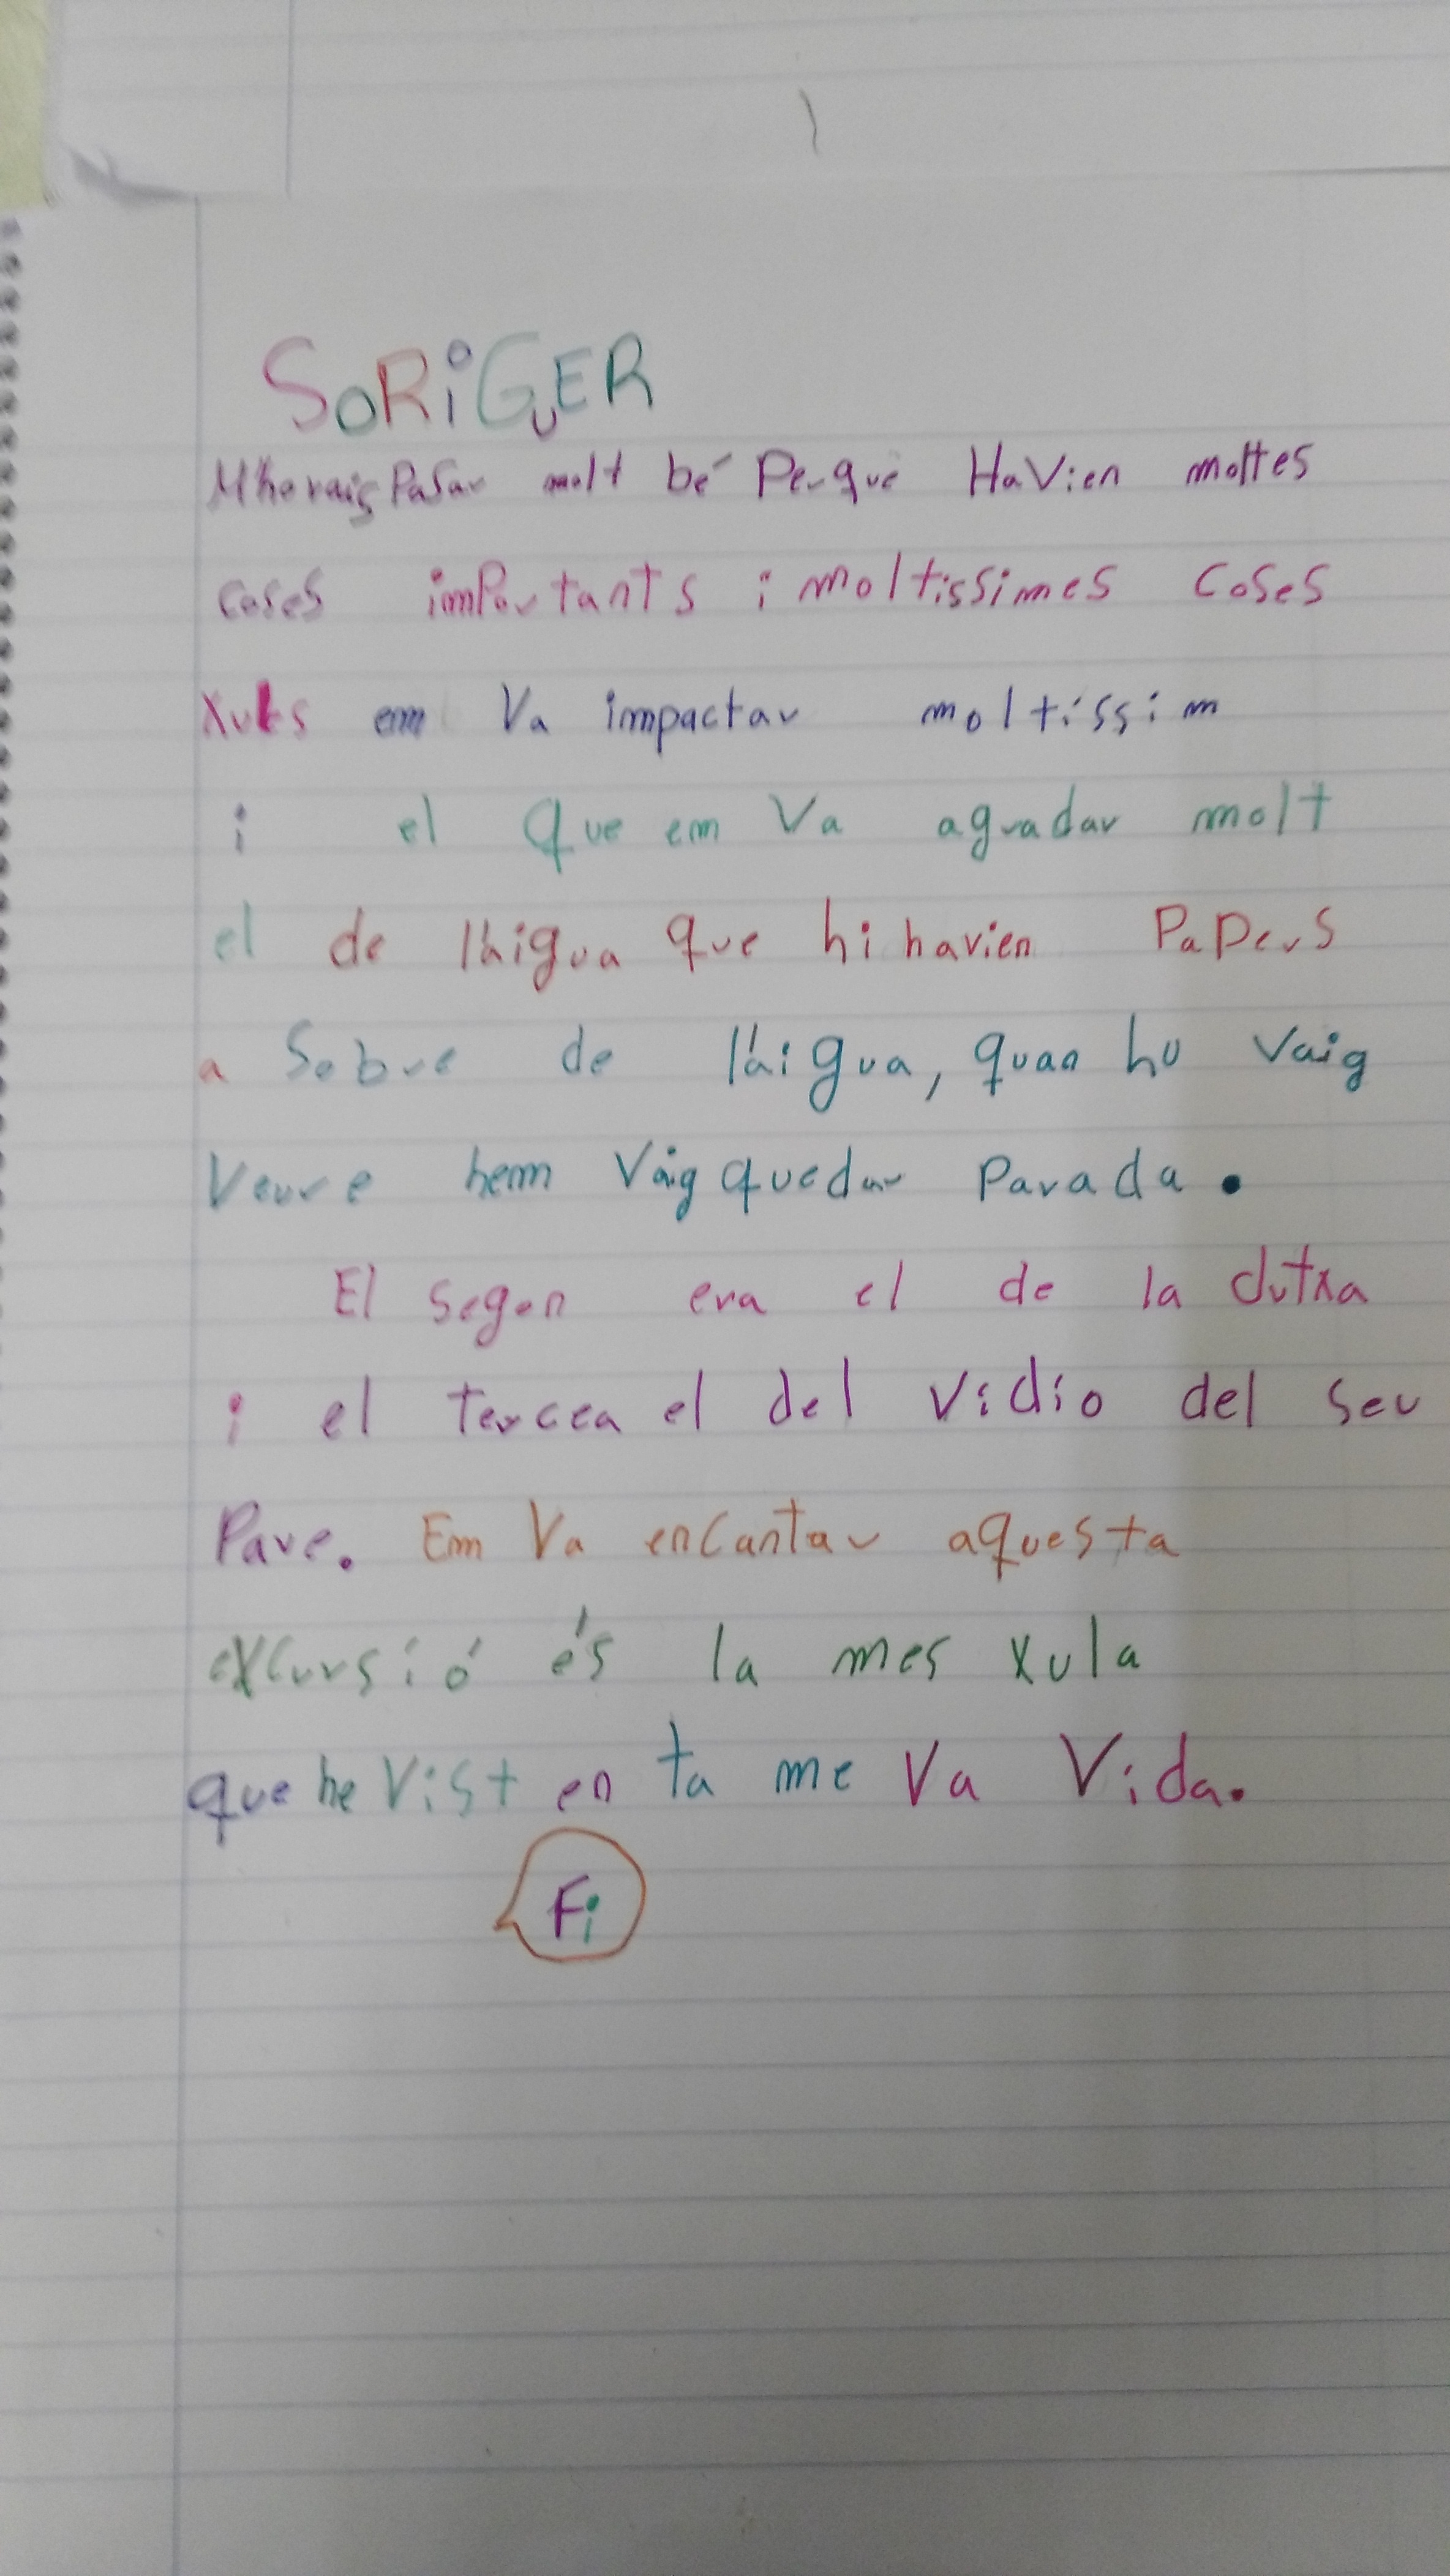 SORiGUER
Mhovaig Pasar molt bé Perque HaVien moltes
coses importants i moltissimes coses
Xules em Va impactar moltíssim
i el que em Va agradar molt
el de l'aigua que hi havien PaPers
a Sobre de l'aigua, quan hu vaig
Veure hem Vaig quedar Parada.
El segon era el de la dutxa
i el tercea el del Vidio del seu
Pare. Em Va encantar aquesta
excursió és la mes xula
que he Vist en ta me Va Vida.
Fi